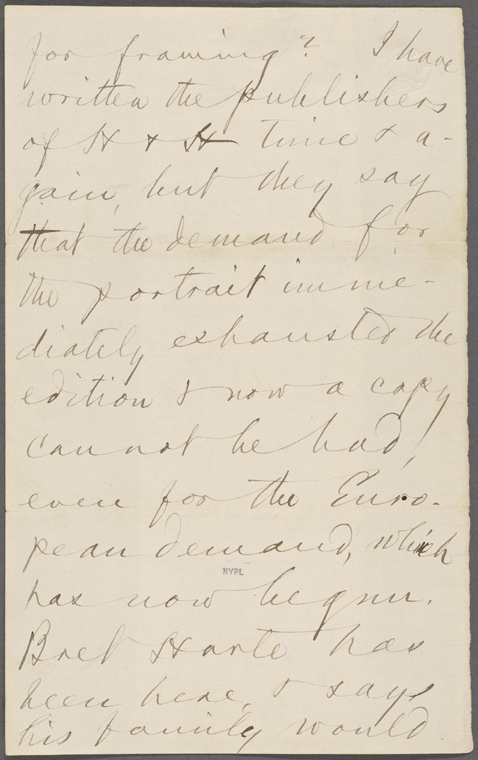 for framing? I have
written the publishers
of H & H time & a-
gain, but they say
that the demand for
the portrait imme-
diately exhausted the
edition & now a copy
can not be had,
even for the Euro-
pean demand, which
NYPL
has now begun.
Bret Harte has
been here, & says
his family would